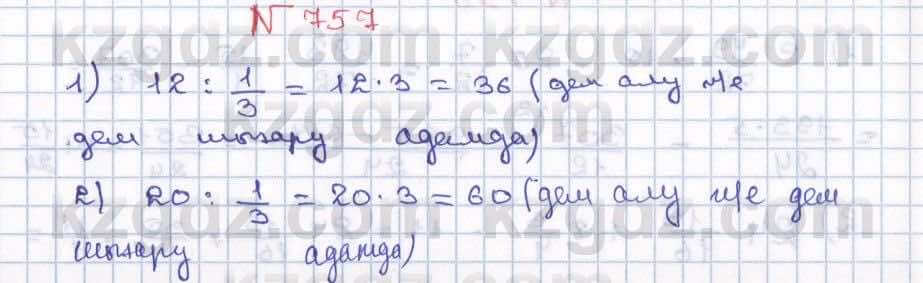 № 757
1) 12 : 1/3 = 12 · 3 = 36 (дем алу ж/е
дем шығару адамда)
2) 20 : 1/3 = 20 · 3 = 60 (дем алу ж/е дем
шығару адамда)
kzgdz.com kzgdz.com
kzgdz.com
kzgdz.com kzgdz.com